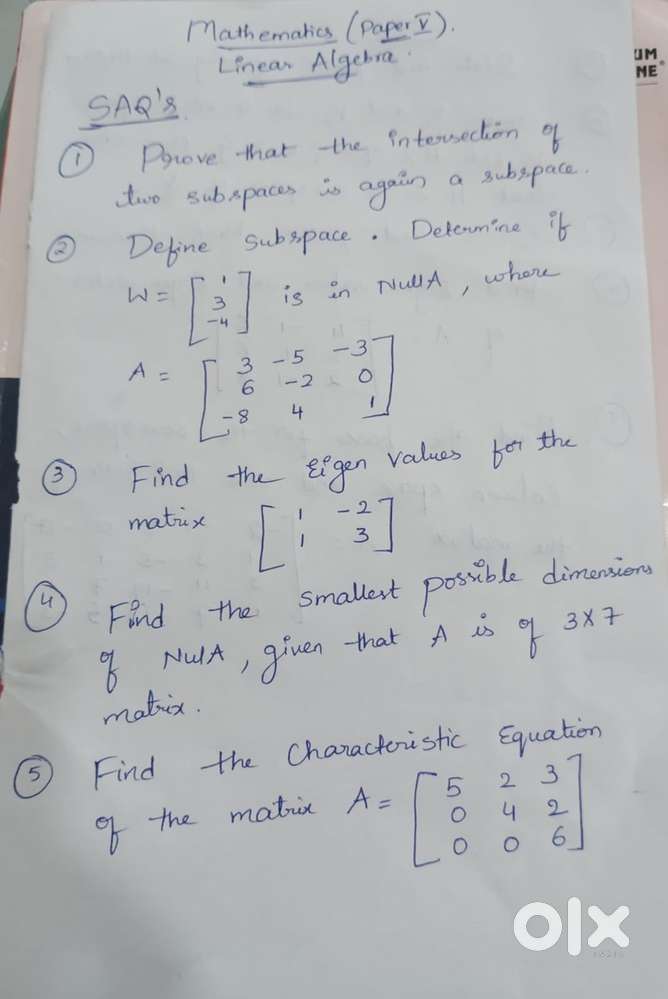 Mathematics (Paper V).
Linear Algebra.
SAQ's
① Prove that the intersection of
two subspaces is again a subspace.
② Define Subspace. Determine if
W = [1 3 -4] is in NullA, where
A = [3 -5 -3
6 -2 0
-8 4 1]
③ Find the Eigen values for the
matrix [1 -2
1 3]
④ Find the smallest possible dimensions
of NulA, given that A is of 3x7
matrix.
⑤ Find the Characteristic Equation
of the matrix A = [5 2 3
0 4 2
0 0 6]
UM
NE
olx